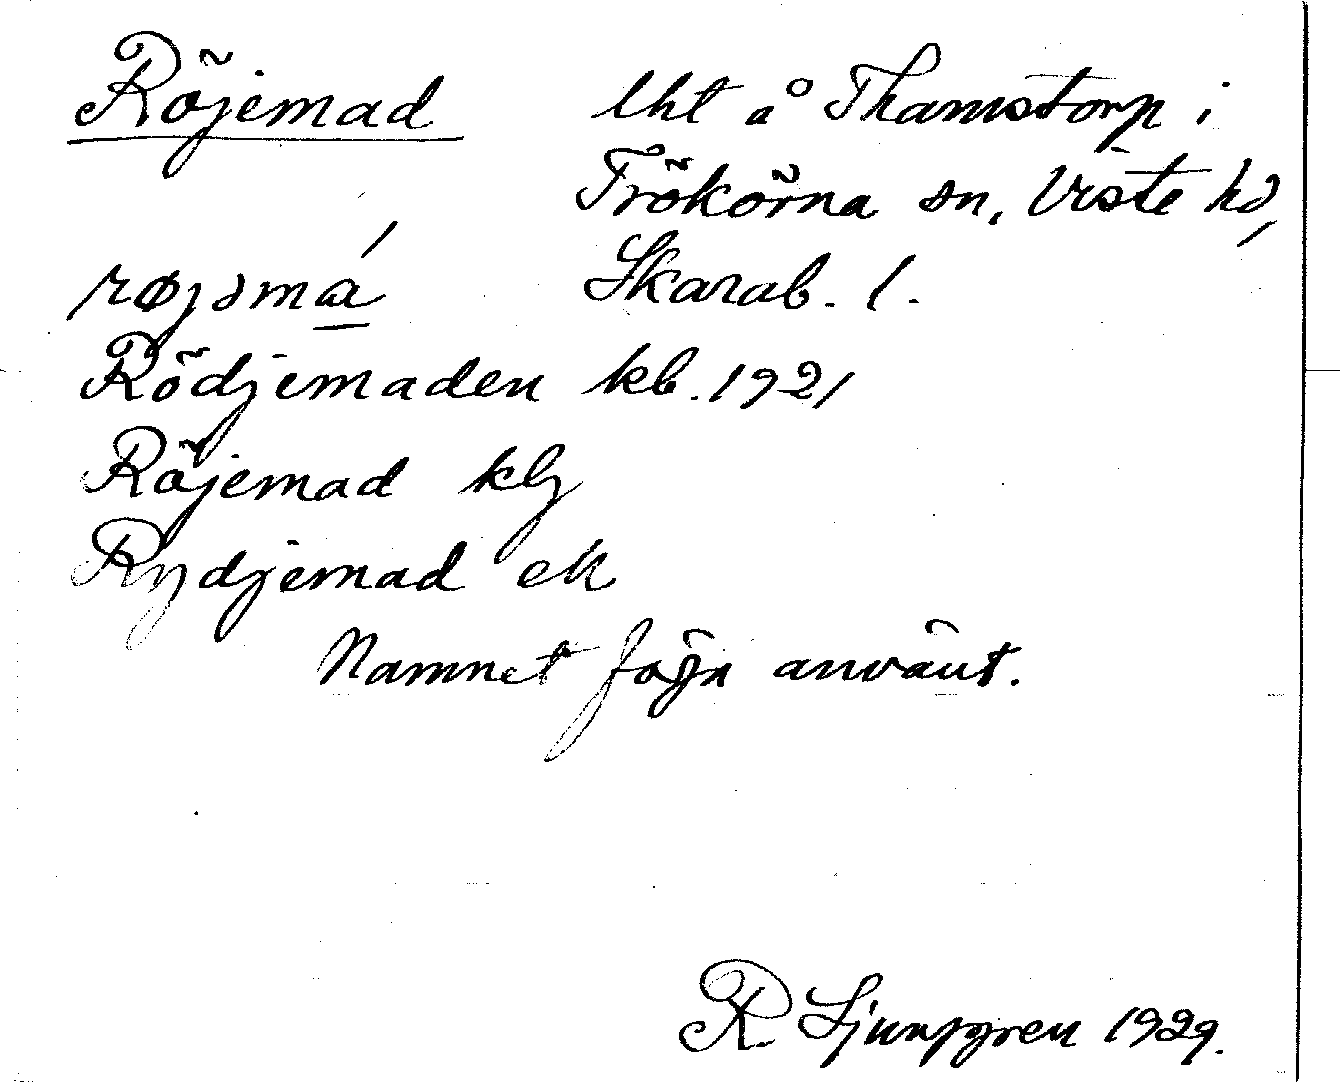 Röjemad lht å Thamstorp i
Trökörna sn, Viste hd,
røjəmá Skarab. l.
Rödjemaden kb. 1921
Röjemad klj
Rydjemad ek
Namnet föga använt.
R Ljunggren 1929.